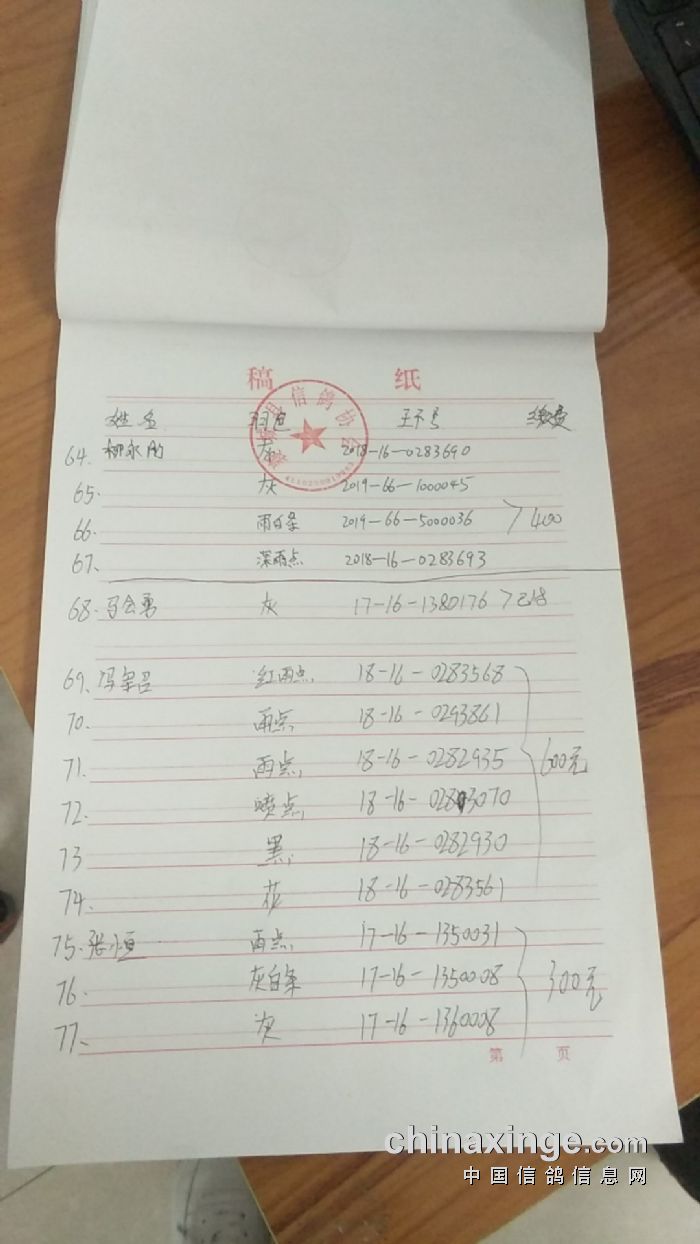 稿 纸
信鸽协会
姓名 羽色 环号 缴费
64. 柳永 灰 2018-16-0283690
65. 灰 2019-66-1000045
66. 雨白条 2019-66-5000036 >400
67. 深雨点 2018-16-0283693
68. 马会勇 灰 17-16-1380176 >
69. 冯 红雨点 18-16-0283568
70. 雨点 18-16-0293861
71. 雨点 18-16-0282935 600元
72. 喷点 18-16-0283070
73 黑 18-16-0282930
74. 花 18-16-0283561
75. 张小恒 雨点 17-16-1350031
76. 灰白条 17-16-1350008 300元
77. 灰 17-16-1360008
第 页
chinaxinge.com
中国信鸽信息网